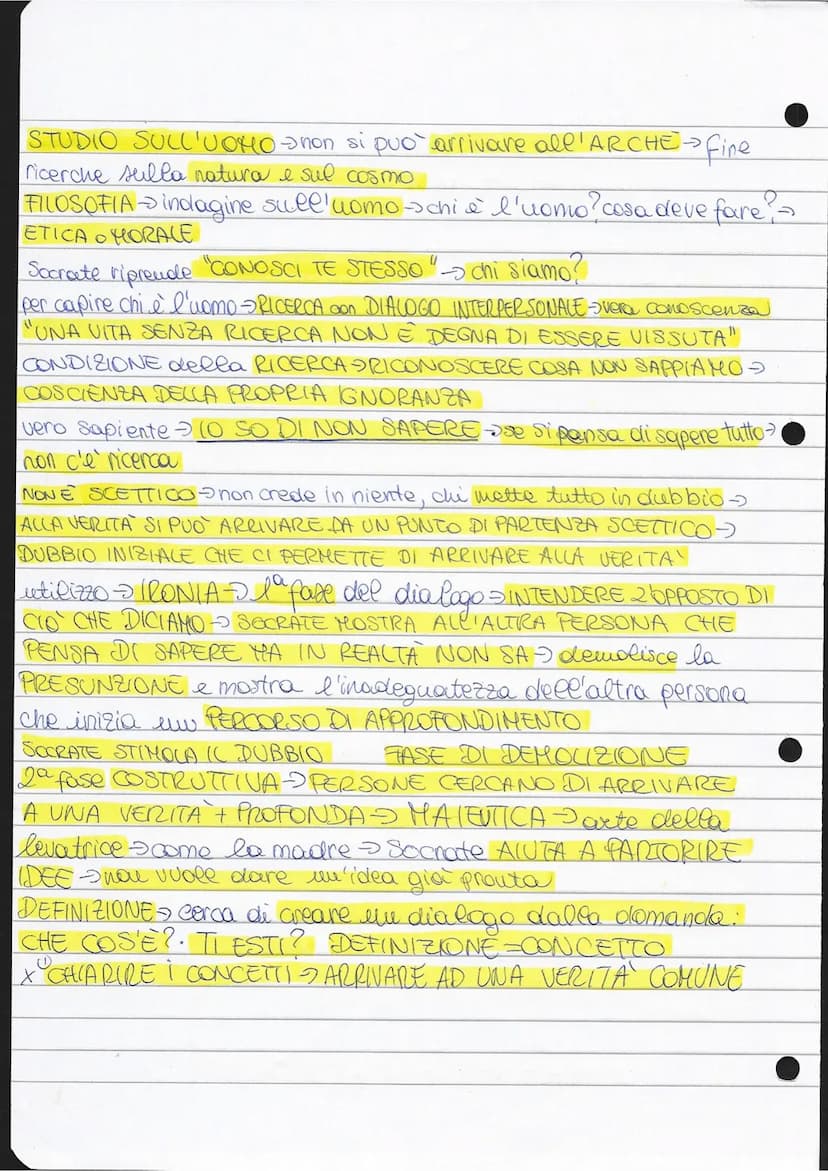 STUDIO SULL'UOMO → non si può arrivare all'ARCHÈ → fine
ricerche sulla natura e sul cosmo
FILOSOFIA → indagine sull'uomo → chi è l'uomo? cosa deve fare? →
ETICA o MORALE
Socrate riprende "CONOSCI TE STESSO" → chi siamo?
per capire chi è l'uomo → RICERCA con DIALOGO INTERPERSONALE → vera conoscenza
"UNA VITA SENZA RICERCA NON È DEGNA DI ESSERE VISSUTA"
CONDIZIONE della RICERCA → RICONOSCERE COSA NON SAPPIAMO →
COSCIENZA DELLA PROPRIA IGNORANZA
vero sapiente → IO SO DI NON SAPERE → se si pensa di sapere tutto →
non c'è ricerca
NON È SCETTICO → non crede in niente, chi mette tutto in dubbio →
ALLA VERITÀ SI PUÒ ARRIVARE DA UN PUNTO DI PARTENZA SCETTICO →
DUBBIO INIZIALE CHE CI PERMETTE DI ARRIVARE ALLA VERITÀ
utilizzo → IRONIA → 1ª fase del dialogo → INTENDERE L'OPPOSTO DI
CIÒ CHE DICIAMO → SOCRATE MOSTRA ALL'ALTRA PERSONA CHE
PENSA DI SAPERE MA IN REALTÀ NON SA → demolisce la
PRESUNZIONE e mostra l'inadeguatezza dell'altra persona
che inizia un PERCORSO DI APPROFONDIMENTO
SOCRATE STIMOLA IL DUBBIO FASE DI DEMOLIZIONE
2ª fase COSTRUTTIVA → PERSONE CERCANO DI ARRIVARE
A UNA VERITÀ + PROFONDA → MAIEUTICA → arte della
levatrice → come la madre → Socrate AIUTA A PARTORIRE
IDEE → non vuole dare un'idea già pronta
DEFINIZIONE → cerca di creare un dialogo dalla domanda:
CHE COS'È? TI ESTI? DEFINIZIONE = CONCETTO
x (1) CHIARIRE I CONCETTI → ARRIVARE AD UNA VERITÀ COMUNE